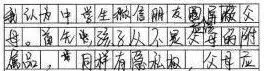 我认为中学生微信朋友圈屏蔽父
母。首先，孩子从不是父母的附
属品，同样有隐私权，父母应